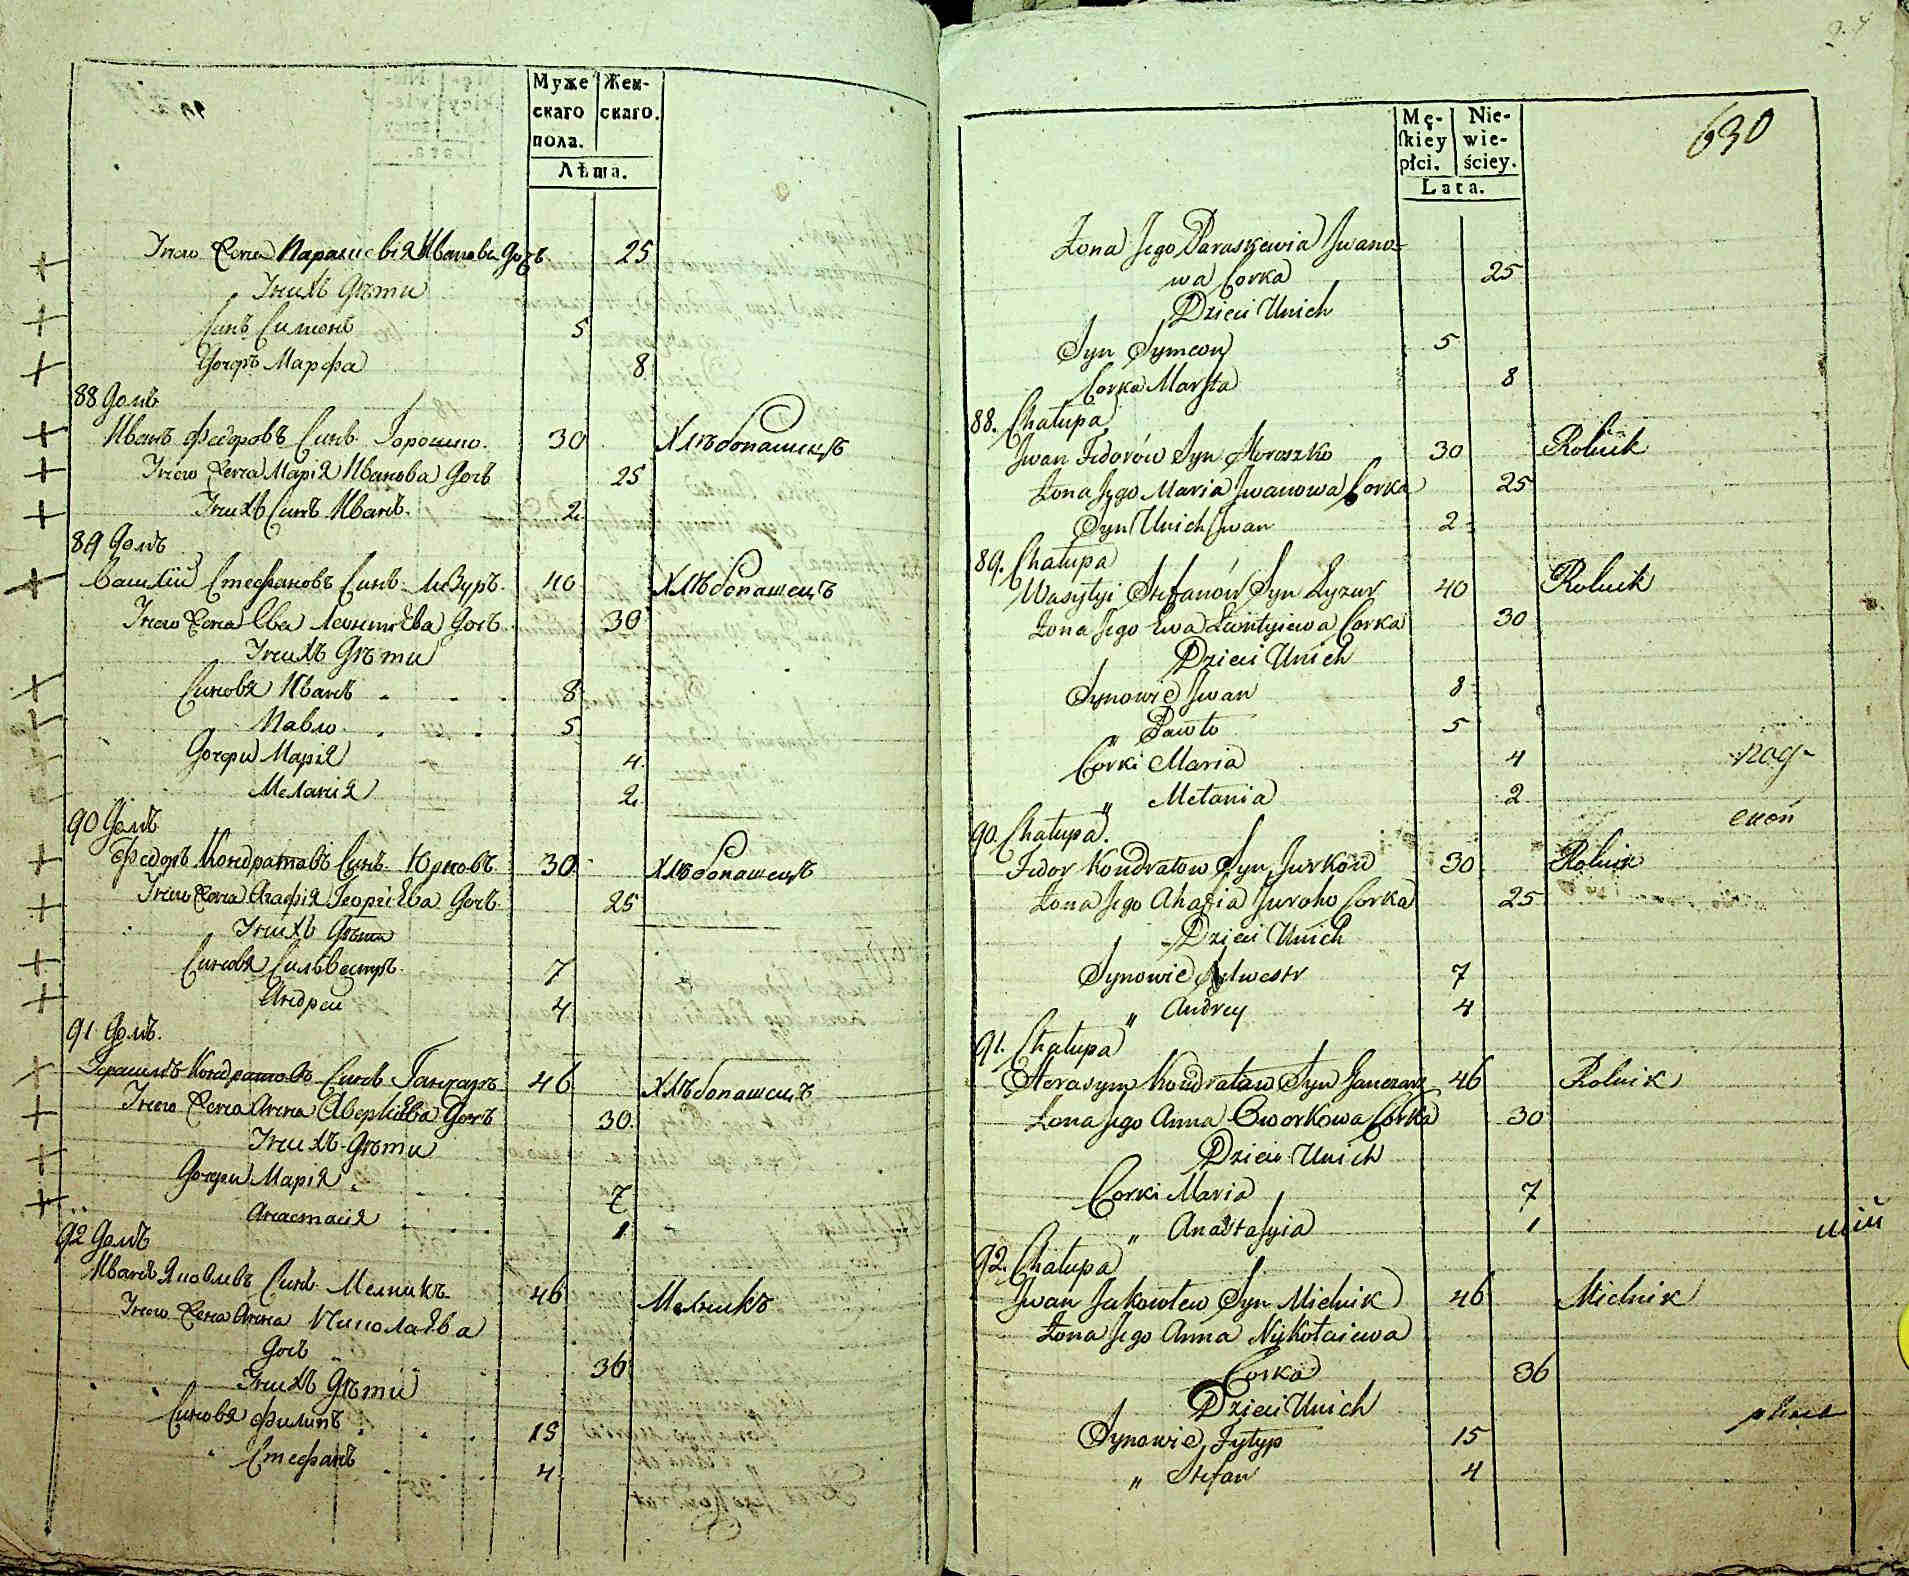 Муже Жен-
скаго скаго.
пола.
Лѣта.
Жена Парасковія Иванова Дочь 25
Дѣти
Синъ Симонъ 5
Дочерь Марфа 8
88 Домъ
Иванъ Федоровъ Синъ Горошко 30 Хлѣбопашецъ
Жена Марія Иванова Дочь 25
Синъ Иванъ 2
89 Домъ
Василій Стефановъ Синъ Лизуръ 40 Хлѣбопашецъ
Жена Ева Леонтіева Дочь 30
Дѣти
Синовя Иванъ 8
Павло 5
Дочери Марія 4
Меланія 2
90 Домъ
Федоръ Кондратовъ Синъ Юрковъ 30 Хлѣбопашецъ
Жена Агафія Георгіева Дочь 25
Дѣти
Синовя Сильвестръ 7
Андреи 4
91 Домъ.
Герасимъ Кондратовъ Синъ Ганчаръ 46 Хлѣбопашецъ
Жена Анна Аверкіева Дочь 30
Дѣти
Дочери Марія 7
Анастасія 1
92 Домъ
Иванъ Яковлевъ Синъ Мелникъ 46 Мелникъ
Жена Анна Николаева
Дочь 36
Дѣти
Синовя Филипъ 15
Стефанъ 4
630
Mę- Nie-
ſkiey wie-
płci. ściey.
Lata.
Żona Jego Paraskewia Iwano-
wa Corka 25
Dzieci Unich
Syn Symeon 5
Corka Marfta 8
88. Chałupa
Iwan Fedorów Syn Horoszko 30 Rolnik
Żona Jego Maria Iwanowa Corka 25
Syn Unich Iwan 2
89. Chałupa
Wasylyi Stefanów Syn Łyzur 40 Rolnik
Żona Jego Ewa Leontyiewa Corka 30
Dzieci Unich
Synowie Iwan 8
" Pawło 5
Corki Maria 4
" Mełania 2
90. Chałupa.
Fedor Kondratow Syn Jurkow 30 Rolnik
Żona Jego Ahafia Juroho Corka 25
Dzieci Unich
Synowie Sylwestr 7
" Andrey 4
91. Chałupa
Herasym Kondratow Syn Ganczarz 46 Rolnik
Żona Jego Anna Owerkowa Corka 30
Dzieci Unich
Corki Maria 7
" Anastasyia 1
92. Chałupa
Iwan Jakowlew Syn Mielnik 46 Mielnik
Żona Jego Anna Nikołaiewa
Corka 36
Dzieci Unich
Synowie Fylyp 15
" Stefan 4